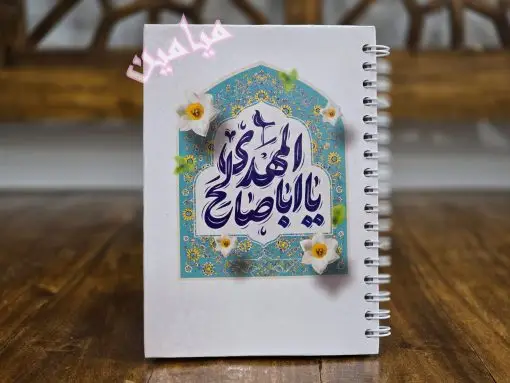 میامین
یا اباصالح
المهدی